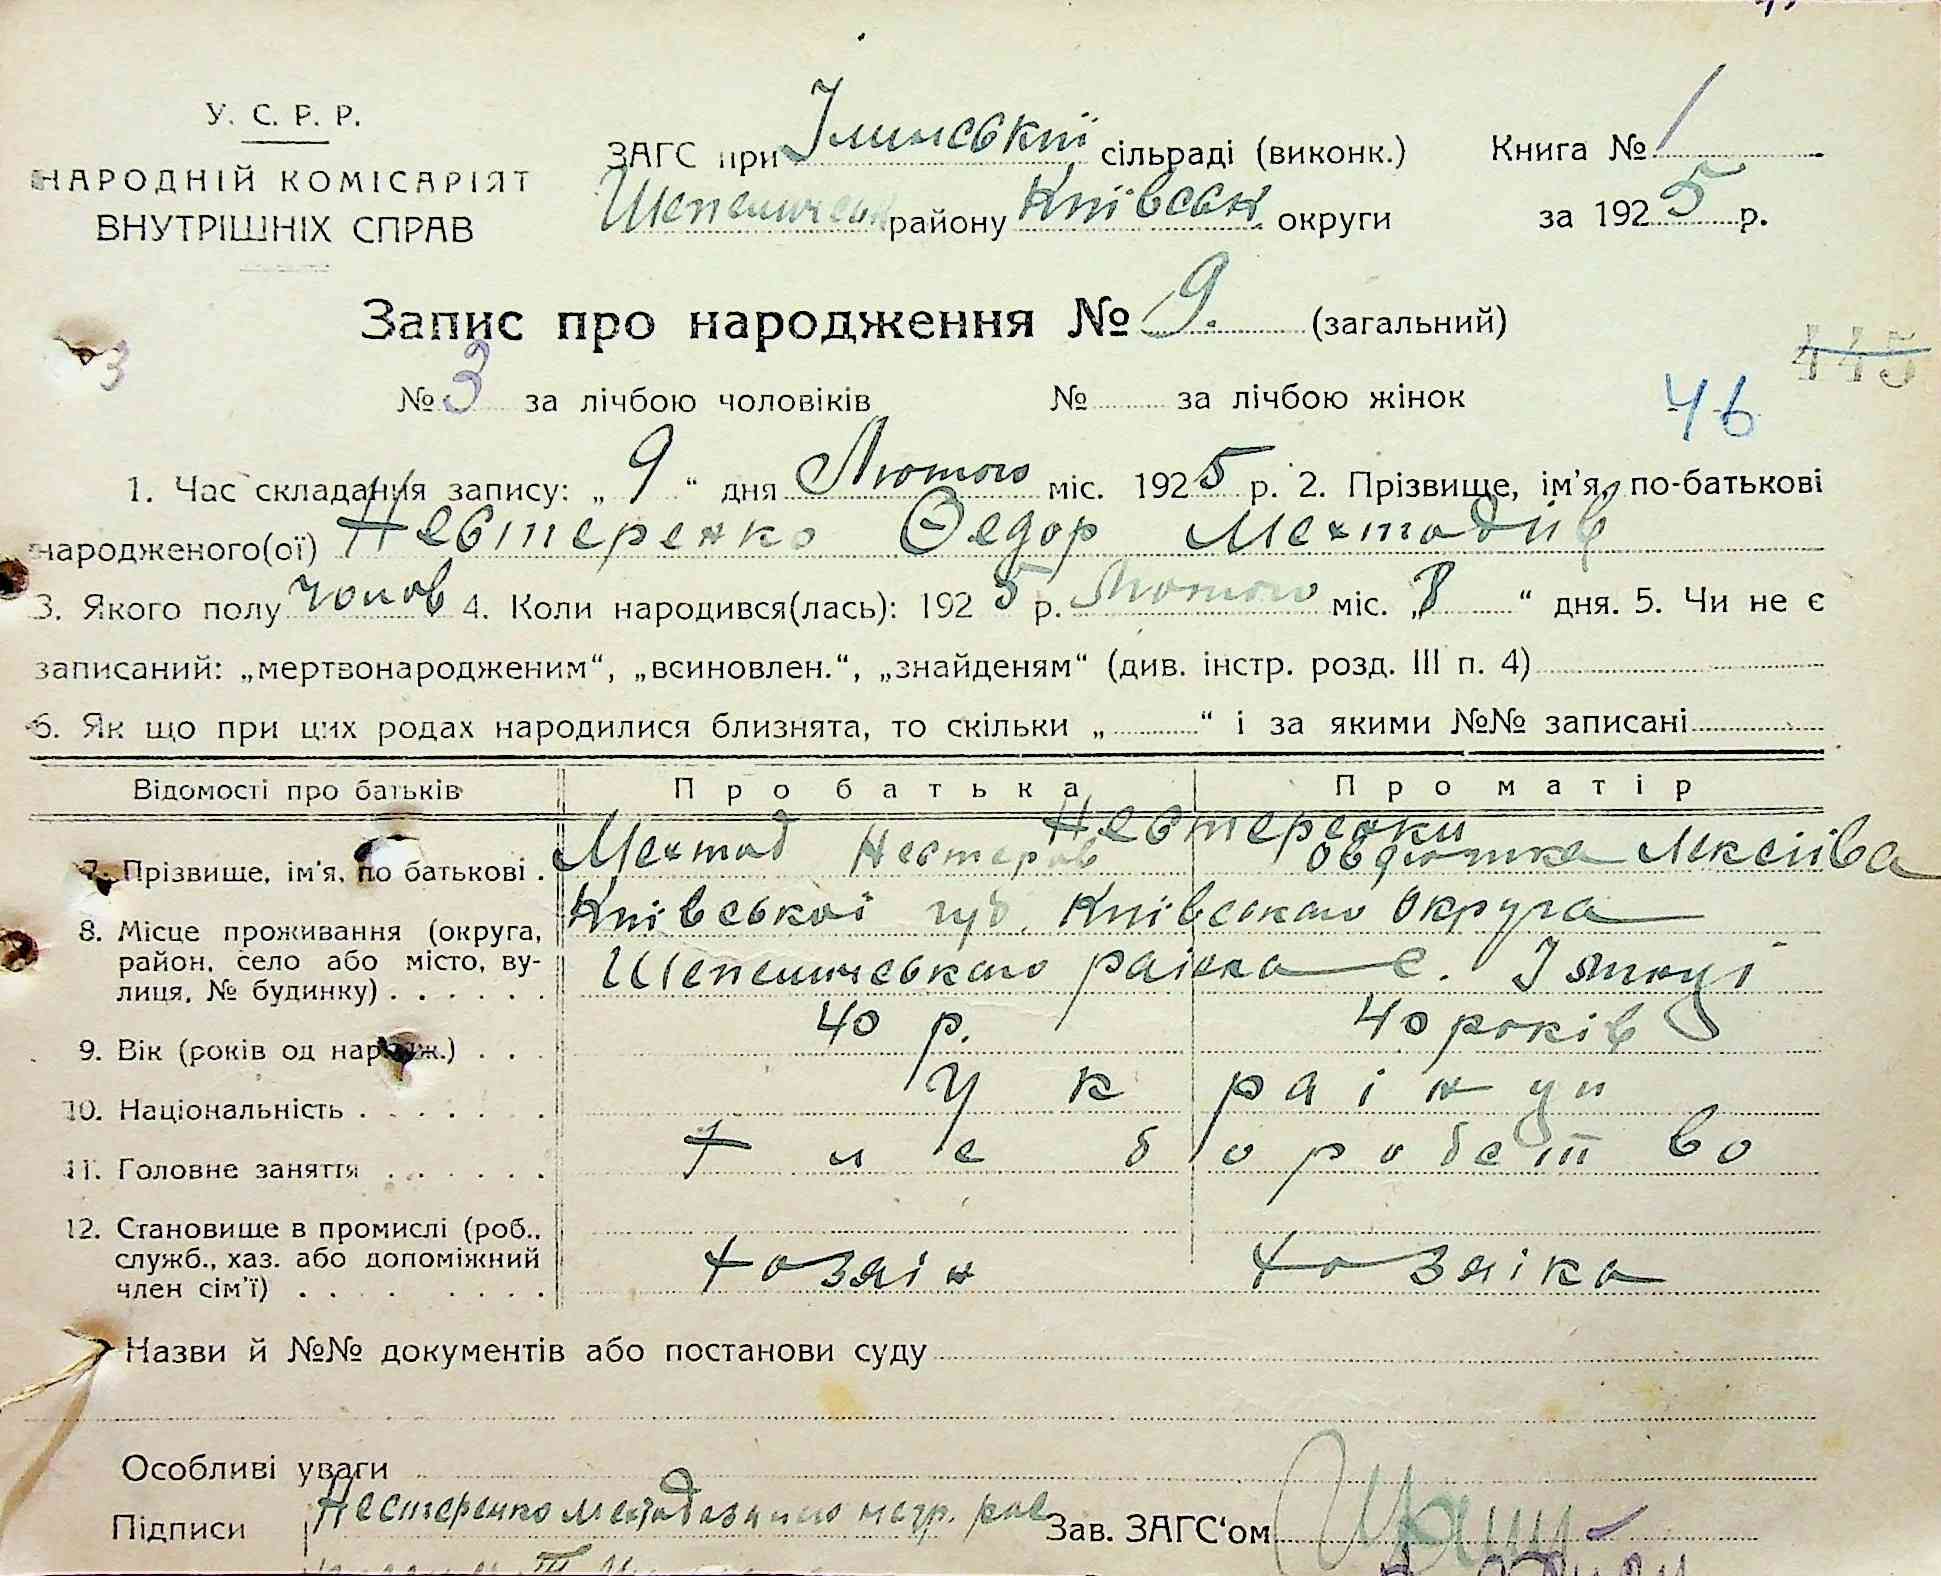 У. С. Р. Р.
НАРОДНІЙ КОМІСАРІЯТ
ВНУТРІШНІХ СПРАВ
ЗАГС при Ілинській сільраді (виконк.) Книга № 1
Шепелическ району Київськ округи за 1925 р.
Запис про народження № 9. (загальний)
445
№ 3 за лічбою чоловіків № за лічбою жінок
3
46
1. Час складання запису: „ 9 “ дня Лютого міс. 1925 р. 2. Прізвище, ім'я, по-батькові
народженого(ої) Нестеренко Федор Мехтодіів
3. Якого полу чолов 4. Коли народився(лась): 1925 р. Лютого міс. „8 “ дня. 5. Чи не є
записаний: „мертвонародженим“, „всиновлен.“, „знайденям“ (див. інстр. розд. III п. 4)
6. Як що при цих родах народилися близнята, то скільки „ “ і за якими №№ записані
Відомості про батьків Про батька Про матір
Нестеренки
7. Прізвище, ім'я, по батькові . Мехтод Нестеров Овдютка Алексіїва
8. Місце проживання (округа, Київської губ. Київського Округа
район, село або місто, ву- Шепеличського раіона с. Ілинці
лиця, № будинку) . . . . . .
9. Вік (років од нарядж.) . . . 40 р. 40 років
10. Національність . . . . . . . Украінци
11. Головне заняття . . . . . . Хлеборобство
12. Становище в промислі (роб.,
служб., хаз. або допоміжний хозяін хозяіка
член сім'ї) . . . . . . . .
Назви й №№ документів або постанови суду
Особливі уваги
Підписи Нестеренко Зав. ЗАГС'ом